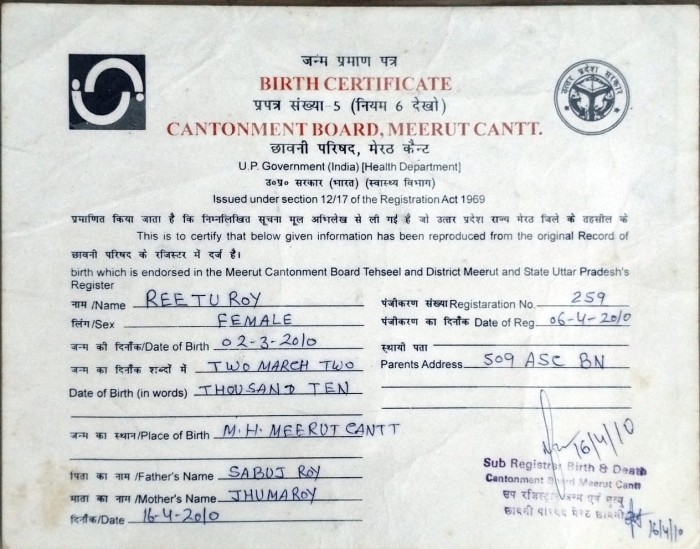 जन्म प्रमाण पत्र
BIRTH CERTIFICATE
प्रपत्र संख्या-5 (नियम 6 देखो)
CANTONMENT BOARD, MEERUT CANTT.
छावनी परिषद, मेरठ कैन्ट
उत्तर प्रदेश सरकार
U.P. Government (India) [Health Department]
उ०प्र० सरकार (भारत) (स्वास्थ्य विभाग)
Issued under section 12/17 of the Registration Act 1969
प्रमाणित किया जाता है कि निम्नलिखित सूचना मूल अभिलेख से ली गई है जो उत्तर प्रदेश राज्य मेरठ जिले के तहसील के
This is to certify that below given information has been reproduced from the original Record of
छावनी परिषद के रजिस्टर में दर्ज है।
birth which is endorsed in the Meerut Cantonment Board Tehseel and District Meerut and State Uttar Pradesh's
Register
नाम /Name REETU ROY पंजीकरण संख्या Registaration No. 259
लिंग /Sex FEMALE पंजीकरण का दिनाँक Date of Reg. 06-4-2010
जन्म की दिनाँक/Date of Birth 02-3-2010 स्थायी पता
जन्म का दिनाँक शब्दों में TWO MARCH TWO Parents Address 509 ASC BN
Date of Birth (in words) THOUSAND TEN
जन्म का स्थान/Place of Birth M.H. MEERUT CANTT
16/4/10
Sub Registrar Birth & Death
Cantonment Board Meerut Cantt
उप रजिस्ट्रार जन्म एवं मृत्यु
छावनी परिषद मेरठ छावनी
16/4/10
पिता का नाम /Father's Name SABUJ ROY
माता का नाम /Mother's Name JHUMA ROY
दिनाँक/Date 16-4-2010